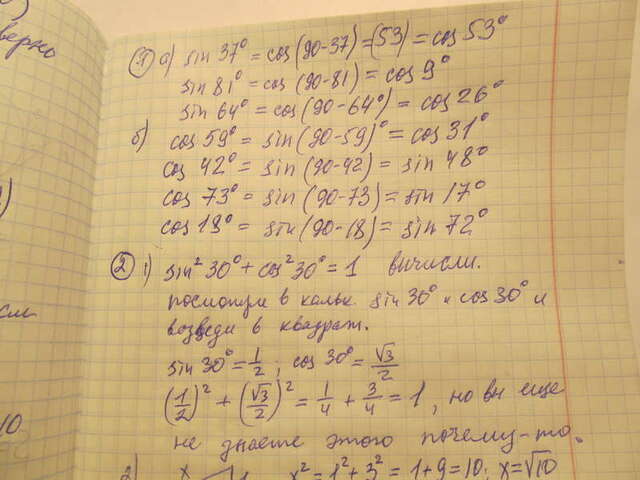 верно
1) а) sin 37° = cos (90-37) = (53) = cos 53°
sin 81° = cos (90-81) = cos 9°
sin 64° = cos (90-64°) = cos 26°
б) cos 59° = sin (90-59)° = cos 31°
cos 42° = sin (90-42) = sin 48°
cos 73° = sin (90-73) = sin 17°
cos 18° = sin (90-18) = sin 72°
2) 1) sin² 30° + cos² 30° = 1 вычисли.
посмотри в кальк. sin 30° и cos 30° и
возведи в квадрат.
sin 30° = 1/2 ; cos 30° = √3/2
(1/2)² + (√3/2)² = 1/4 + 3/4 = 1 , но вы еще
не знаете этого почему-то.
2) x 1 x² = 1² + 3² = 1+9 = 10; x = √10
10